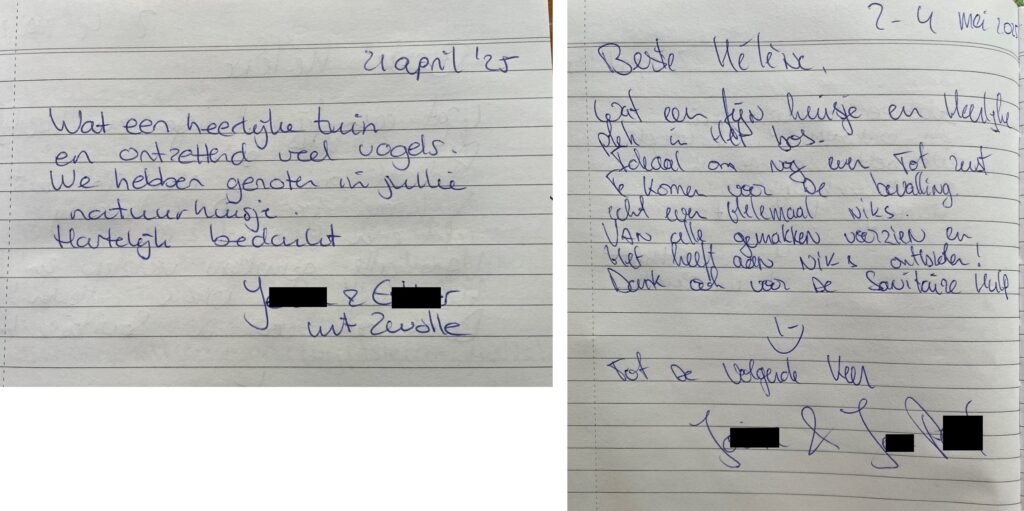 21 april '25
Wat een heerlijke tuin
en ontzettend veel vogels.
We hebben genoten in jullie
natuurhuisje.
Hartelijk bedankt
&
uit Zwolle
2-4 mei
Beste Hélène,
Wat een fijn huisje en Heerlijke
plek in Het bos.
Ideaal om nog even Tot rust
Te komen voor De bevalling
echt even Helemaal niks.
VAN alle gemakken voorzien en
Het heeft aan niks ontbroken!
Dank ook voor De Sanitaire Hulp
Tot De Volgende Keer
&